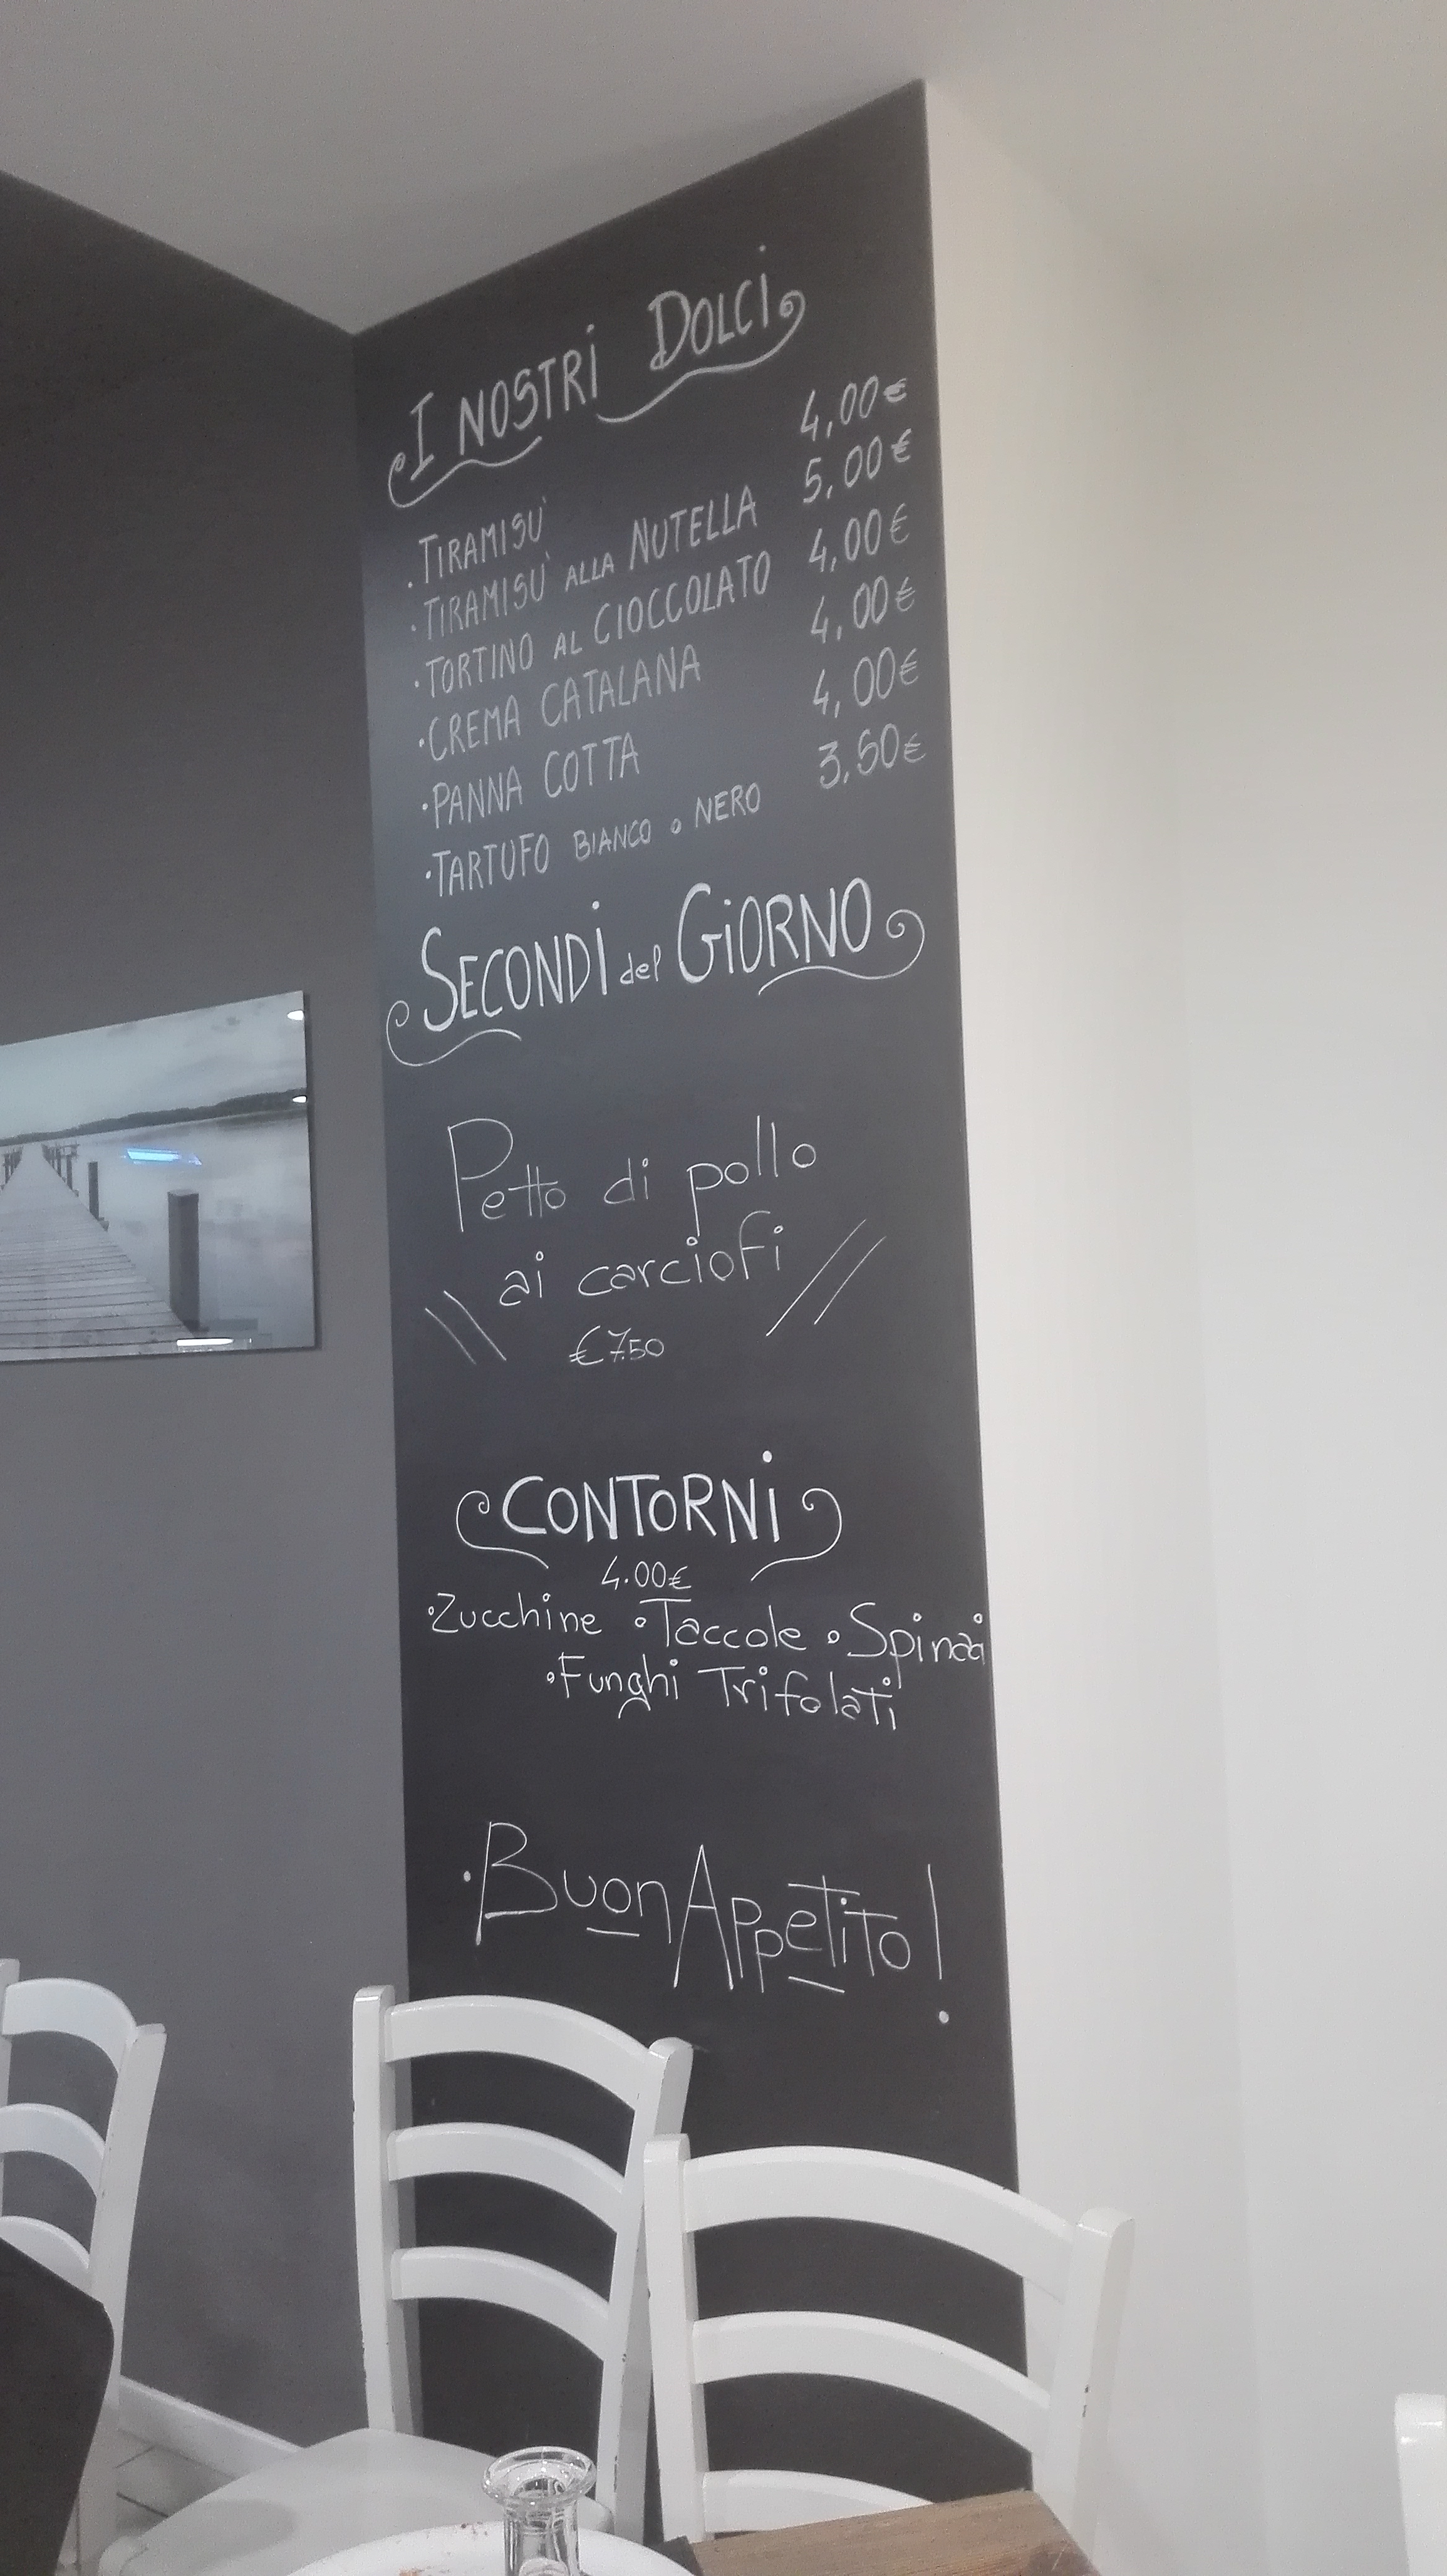 I NOSTRI DOLCI
·TIRAMISU' 4,00€
·TIRAMISU' ALLA NUTELLA 5,00€
·TORTINO AL CIOCCOLATO 4,00€
·CREMA CATALANA 4,00€
·PANNA COTTA 4,00€
·TARTUFO BIANCO o NERO 3,50€
SECONDI del GIORNO
Petto di pollo
ai carciofi
€ 7.50
CONTORNI
4.00€
·Zucchine ·Taccole ·Spinaci
·Funghi Trifolati
·Buon Appetito!